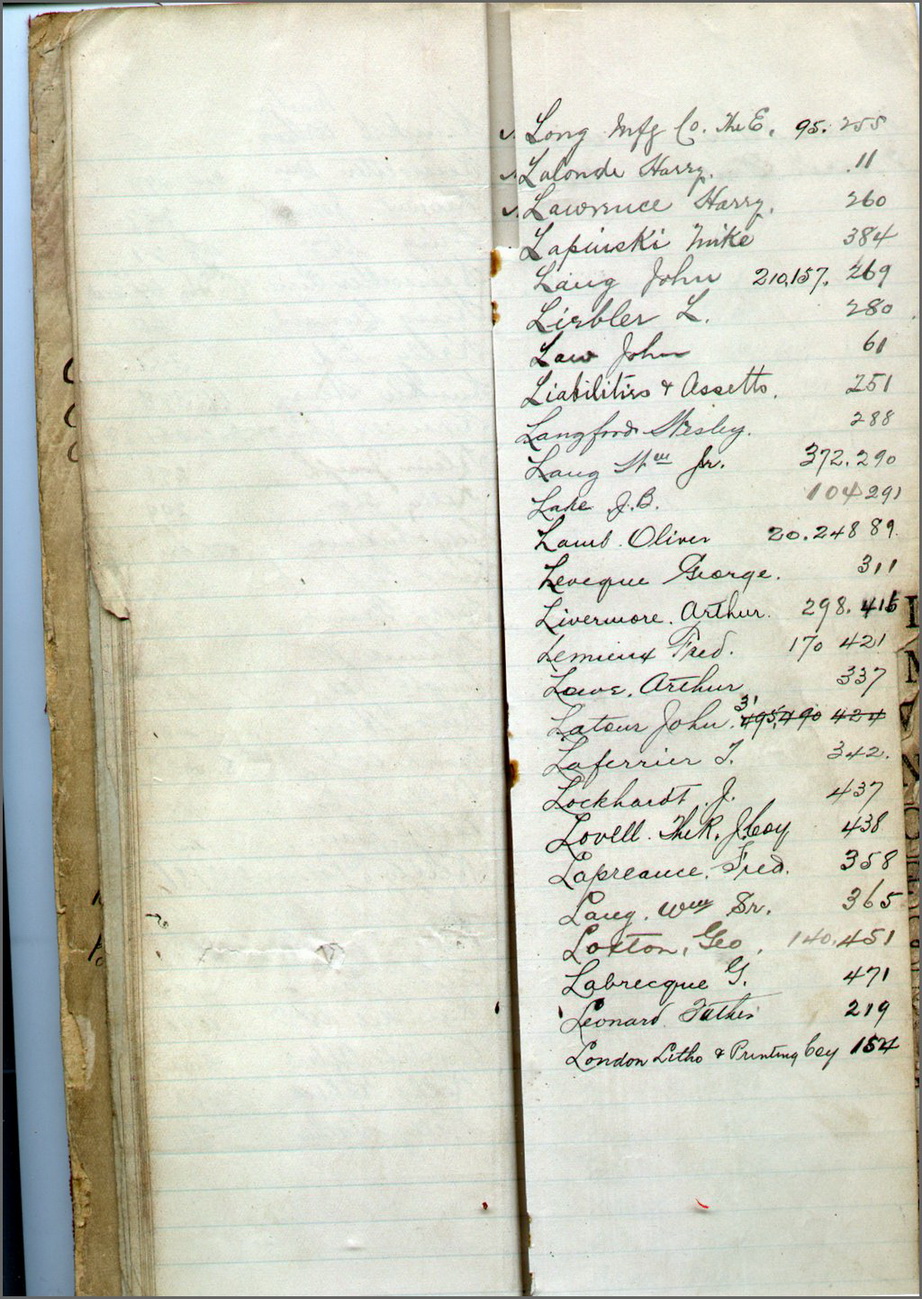 Long Mfg Co. The E. 95. 255
Lalonde Harry. .11
Lawrence Harry. 260
Lapinski Mike 384
Laug John 210,157. 269
Liebler L. 280
Law John 61
Liabilities & Assetts. 251
Langford Wesley. 288
Laug Wm Jr. 372.290
Lake J.B. 104 291
Lamb. Oliver 20.248 89.
Leveque George. 311
Livermore. Arthur. 298. 415
Lemieux Fred. 170 421
Lowe. Arthur 337
Latour John. 31 495,490 424
Laferrier T. 342.
Lockhardt. J. 437
Lovell. The R. J. Coy 438
Lapreance. Fred. 358
Laug. Wm Sr. 365
Loxton, Geo. 140,451
Labrecque G. 471
Leonard. Father 219
London Litho & Printing Coy 154